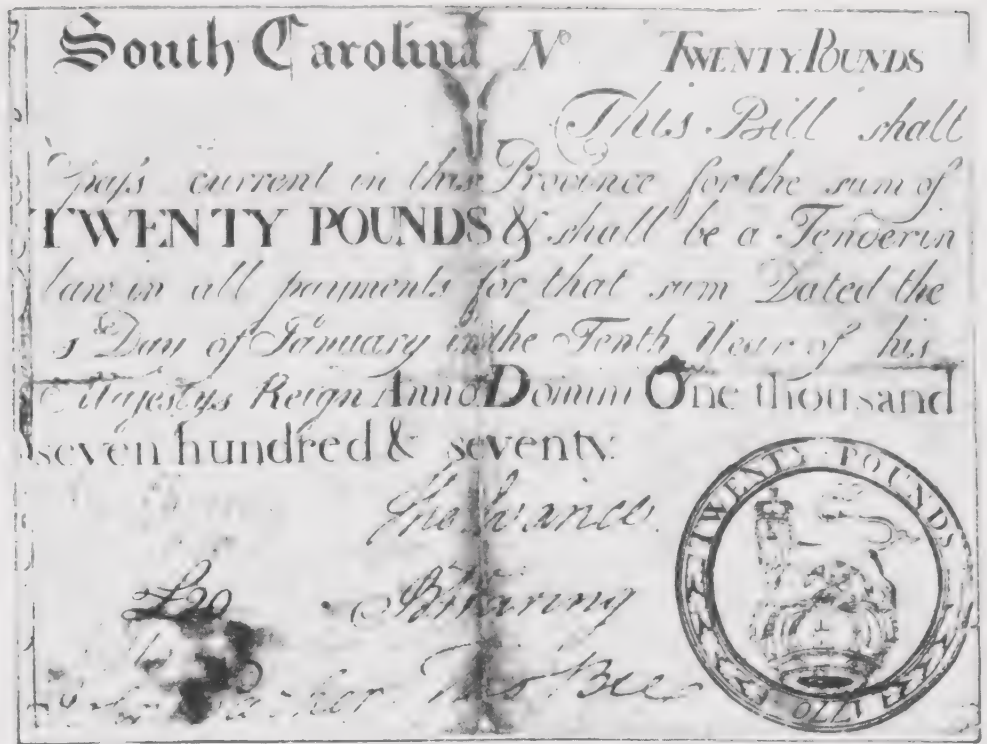 South Carolina No TWENTY POUNDS
This Bill shall
pass current in this Province for the sum of
TWENTY POUNDS & shall be a Tender in
law in all payments for that sum Dated the
Day of January in the Tenth Year of his
Majestys Reign Anno Domini One thousand
seven hundred & seventy.
£20
Tho Bee
TWENTY POUNDS
1770